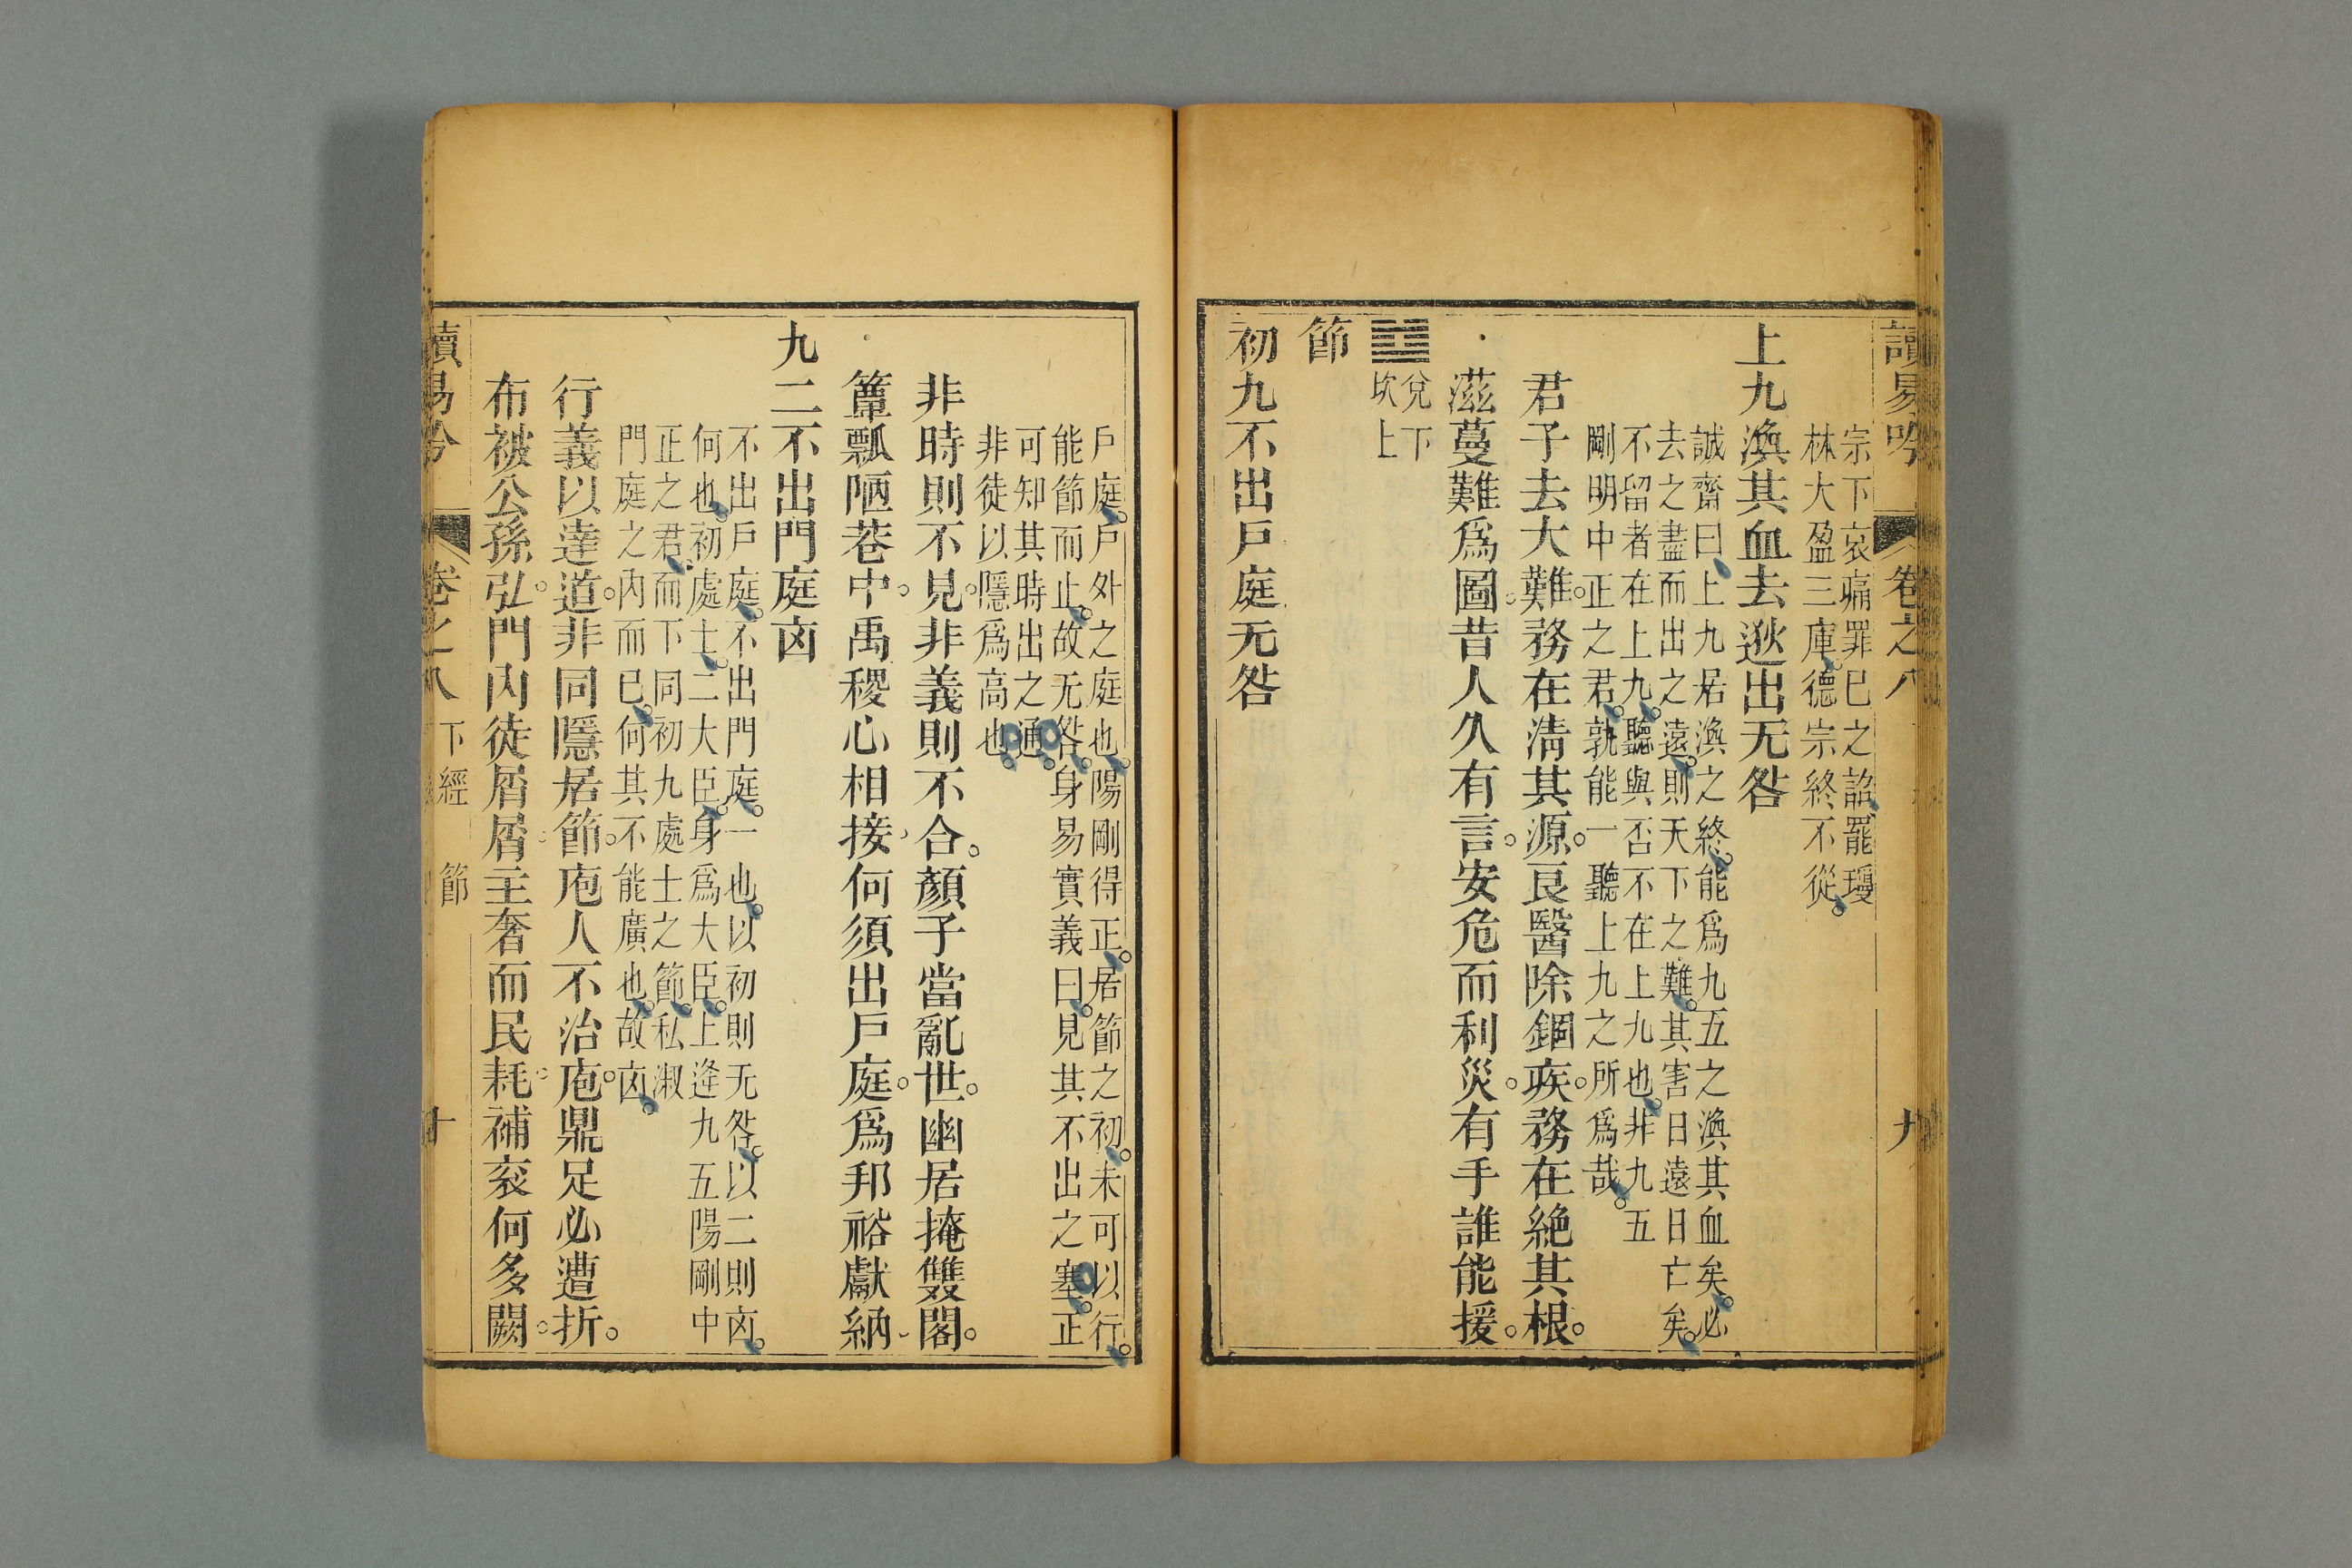 讀易吟 卷之八 九
宗下哀痛罪已之詔罷瓊
林大盈三庫德宗終不從
上九渙其血去逖出无咎
誠齋曰上九居渙之終能爲九五之渙其血矣必
去之盡而出之遠則天下之難其害日遠日亡矣
不留者在上九聽與否不在上九也非九五
剛明中正之君孰能一聽上九之所爲哉
君子去大難務在淸其源良醫除錮疾務在絕其根
滋蔓難爲圖昔人久有言安危而利災有手誰能援
兌下
坎上
節
初九不出戶庭无咎
戶庭戶外之庭也陽剛得正居節之初未可以行
能節而止故无咎身易實義曰見其不出之塞正
可知其時出之通
非徒以隱爲高也
非時則不見非義則不合顏子當亂世幽居掩雙閣
簞瓢陋巷中禹稷心相接何須出戶庭爲邦裕獻納
九二不出門庭凶
不出戶庭不出門庭一也以初則无咎以二則凶
何也初處士二大臣身爲大臣上逢九五陽剛中
正之君而下同初九處士之節私淑
門庭之內而已何其不能廣也故凶
行義以達道非同隱居節庖人不治庖鼎足必遭折
布被公孫弘門內徒屑屑主奢而民耗補衮何多闕
讀易吟 卷之八 下經 節 十